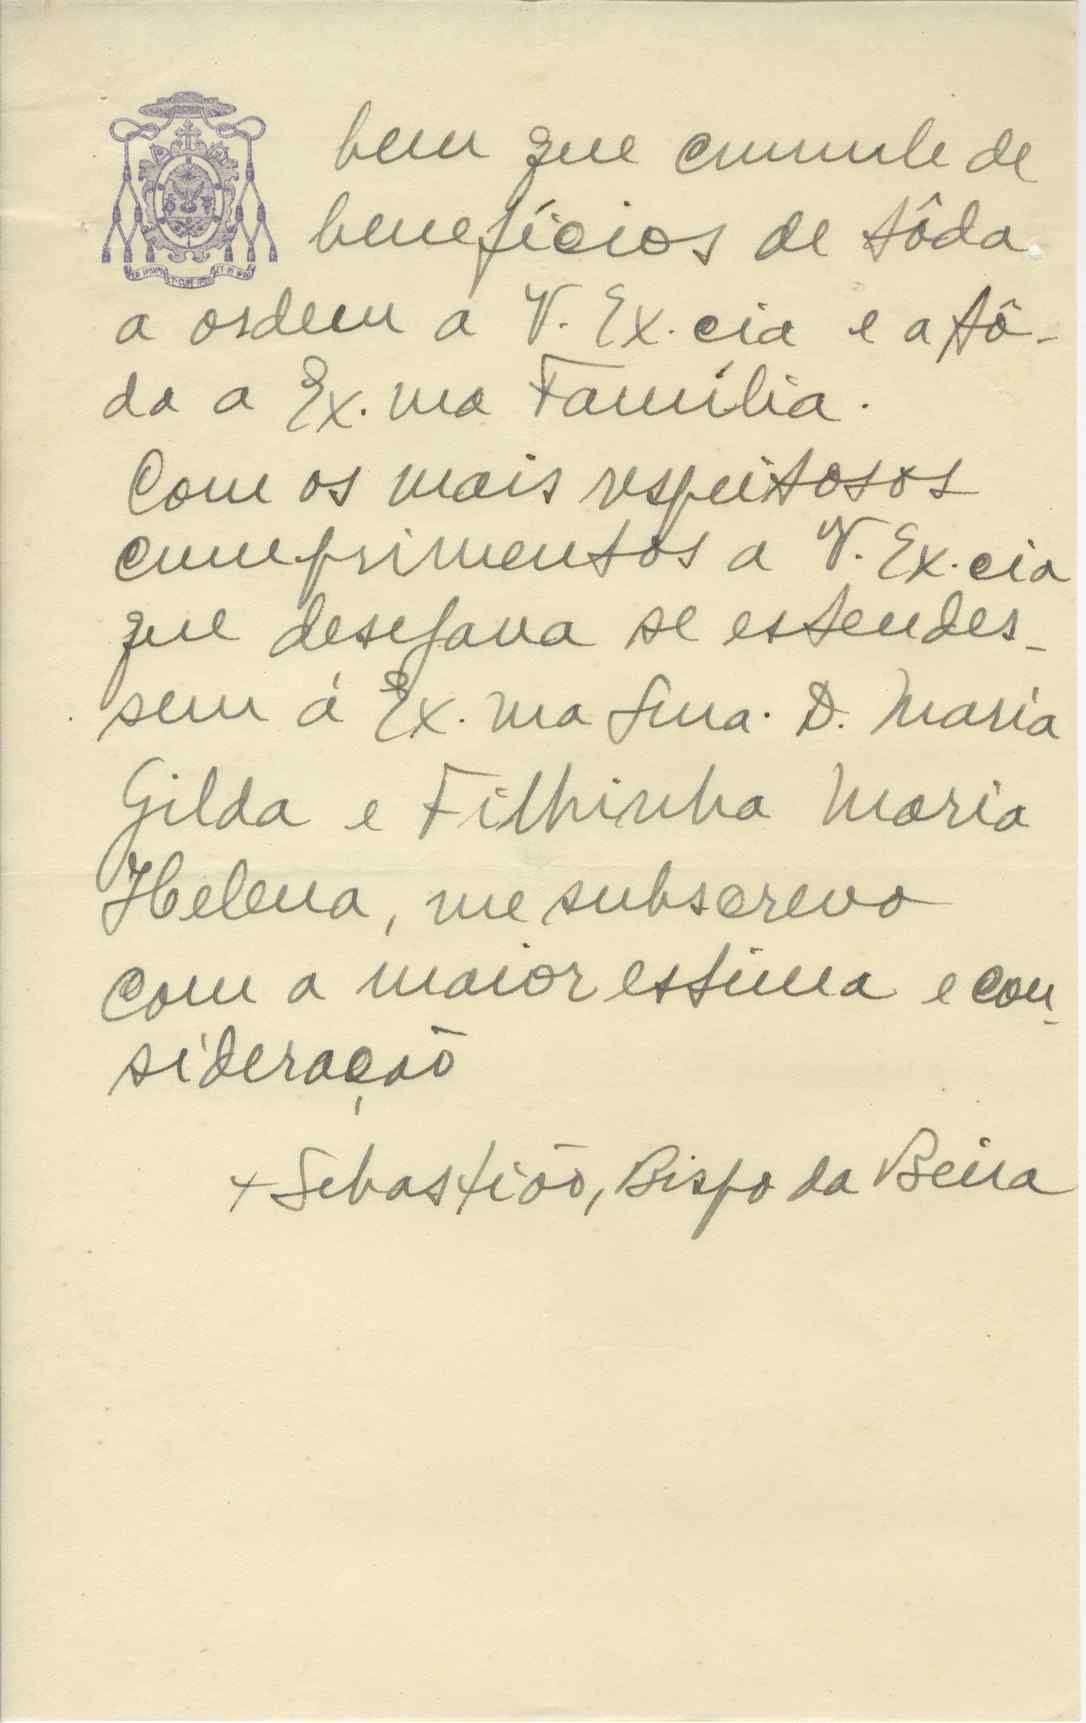 bem que cumule de
benefícios de tôda
a ordem a V. Ex.cia e a tô-
da a Ex.ma Família.
Com os mais respeitosos
cumprimentos a V. Ex.cia
que desejava se estendes-
sem á Ex.ma Snra. D. Maria
Gilda e Filhinha Maria
Helena, me subscrevo
com a maior estima e con-
sideração
+ Sebastião, Bispo da Beira